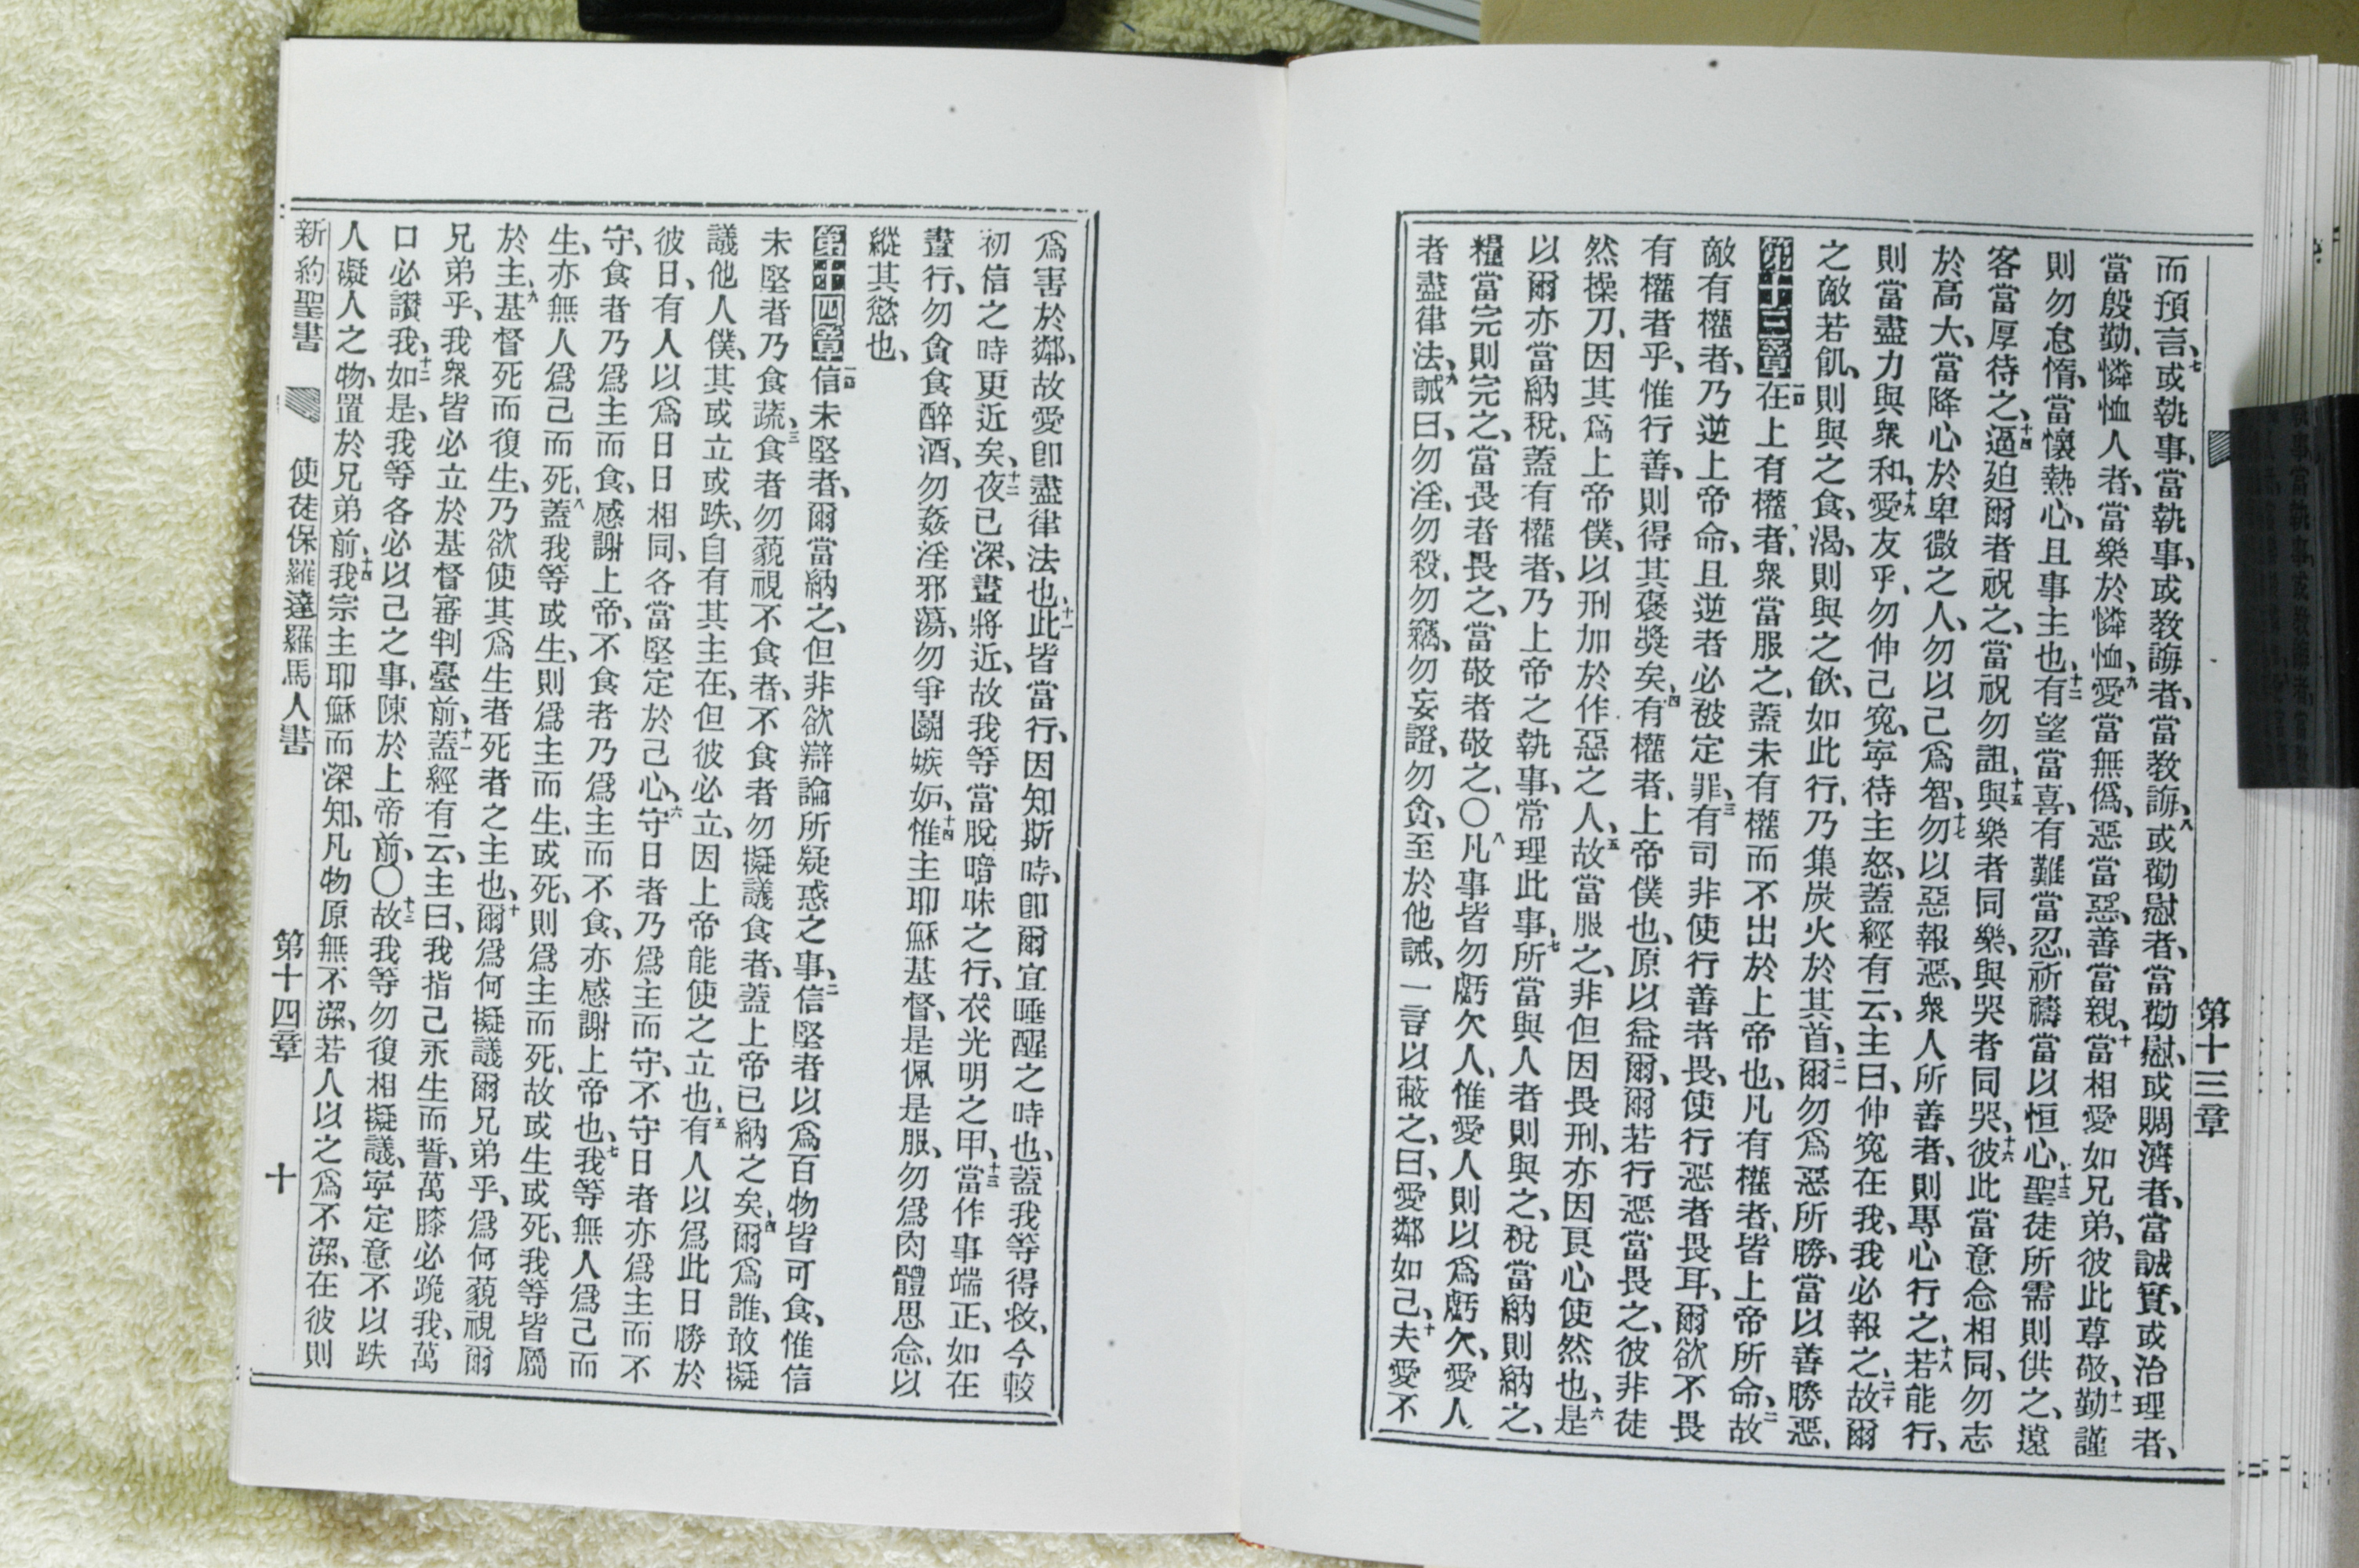 第十三章
而預言、七或執事、當執事、或教誨者、當教誨、八或勸慰者、當勸慰、或賙濟者、當誠實、或治理者、
當殷勤、憐恤人者、當樂於憐恤、九愛當無僞、惡當惡、善當親、十當相愛如兄弟、彼此尊敬、十一勤謹
則勿怠惰、當懷熱心、且事主也、十二有望當喜、有難當忍、祈禱當以恒心、十三聖徒所需則供之、遠
客當厚待之、十四逼迫爾者祝之、當祝勿詛、十五與樂者同樂、與哭者同哭、十六彼此當意念相同、勿志
於高大、當降心於卑微之人、勿以己爲智、十七勿以惡報惡、衆人所善者、則專心行之、十八若能行、
則當盡力與衆和、十九愛友乎、勿伸己寃、寧待主怒、蓋經有云、主曰、伸寃在我、我必報之、二十故爾
之敵若飢、則與之食、渴、則與之飲、如此行、乃集炭火於其首、二一爾勿爲惡所勝、當以善勝惡、
第十三章一節在上有權者、衆當服之、蓋未有權而不出於上帝也、凡有權者、皆上帝所命、二故
敵有權者、乃逆上帝命、且逆者必被定罪、三有司非使行善者畏、使行惡者畏耳、爾欲不畏
有權者乎、惟行善、則得其褒獎矣、四有權者、上帝僕也、原以益爾、爾若行惡當畏之、彼非徒
然操刀、因其爲上帝僕、以刑加於作惡之人、五故當服之、非但因畏刑、亦因良心使然也、六是
以爾亦當納稅、蓋有權者、乃上帝之執事、常理此事、七所當與人者則與之、稅當納則納之、
糧當完則完之、當畏者畏之、當敬者敬之、〇八凡事皆勿虧欠人、惟愛人則以爲虧欠、愛人
者盡律法、九誡曰、勿淫、勿殺、勿竊、勿妄證、勿貪、至於他誡、一言以蔽之、曰、愛鄰如己、十夫愛不
爲害於鄰、故愛卽盡律法也、十一此皆當行、因知斯時、卽爾宜睡醒之時也、蓋我等得救、今較
初信之時更近矣、十二夜已深、晝將近、故我等當脫暗昧之行、衣光明之甲、十三當作事端正、如在
晝行、勿貪食醉酒、勿姦淫邪蕩、勿爭鬬嫉妒、十四惟主耶穌基督、是佩是服、勿爲肉體思念、以
縱其慾也、
第十四章一節信未堅者、爾當納之、但非欲辯論所疑惑之事、二信堅者以爲百物皆可食、惟信
未堅者乃食蔬、三食者勿藐視不食者、不食者勿擬議食者、蓋上帝已納之矣、四爾爲誰、敢擬
議他人僕、其或立或跌、自有其主在、但彼必立、因上帝能使之立也、五有人以爲此日勝於
彼日、有人以爲日日相同、各當堅定於己心、六守日者乃爲主而守、不守日者亦爲主而不
守、食者乃爲主而食、感謝上帝、不食者乃爲主而不食、亦感謝上帝也、七我等無人爲己而
生、亦無人爲己而死、八蓋我等或生、則爲主而生、或死、則爲主而死、故或生或死、我等皆屬
於主、九基督死而復生、乃欲使其爲生者死者之主也、十爾爲何擬議爾兄弟乎、爲何藐視爾
兄弟乎、我衆皆必立於基督審判臺前、十一蓋經有云、主曰、我指己永生而誓、萬膝必跪我、萬
口必讚我、十二如是、我等各必以己之事、陳於上帝前、〇十三故我等勿復相擬議、寧定意不以跌
人礙人之物、置於兄弟前、十四我宗主耶穌而深知、凡物原無不潔、若人以之爲不潔、在彼則
新約聖書 使徒保羅達羅馬人書 第十四章 十